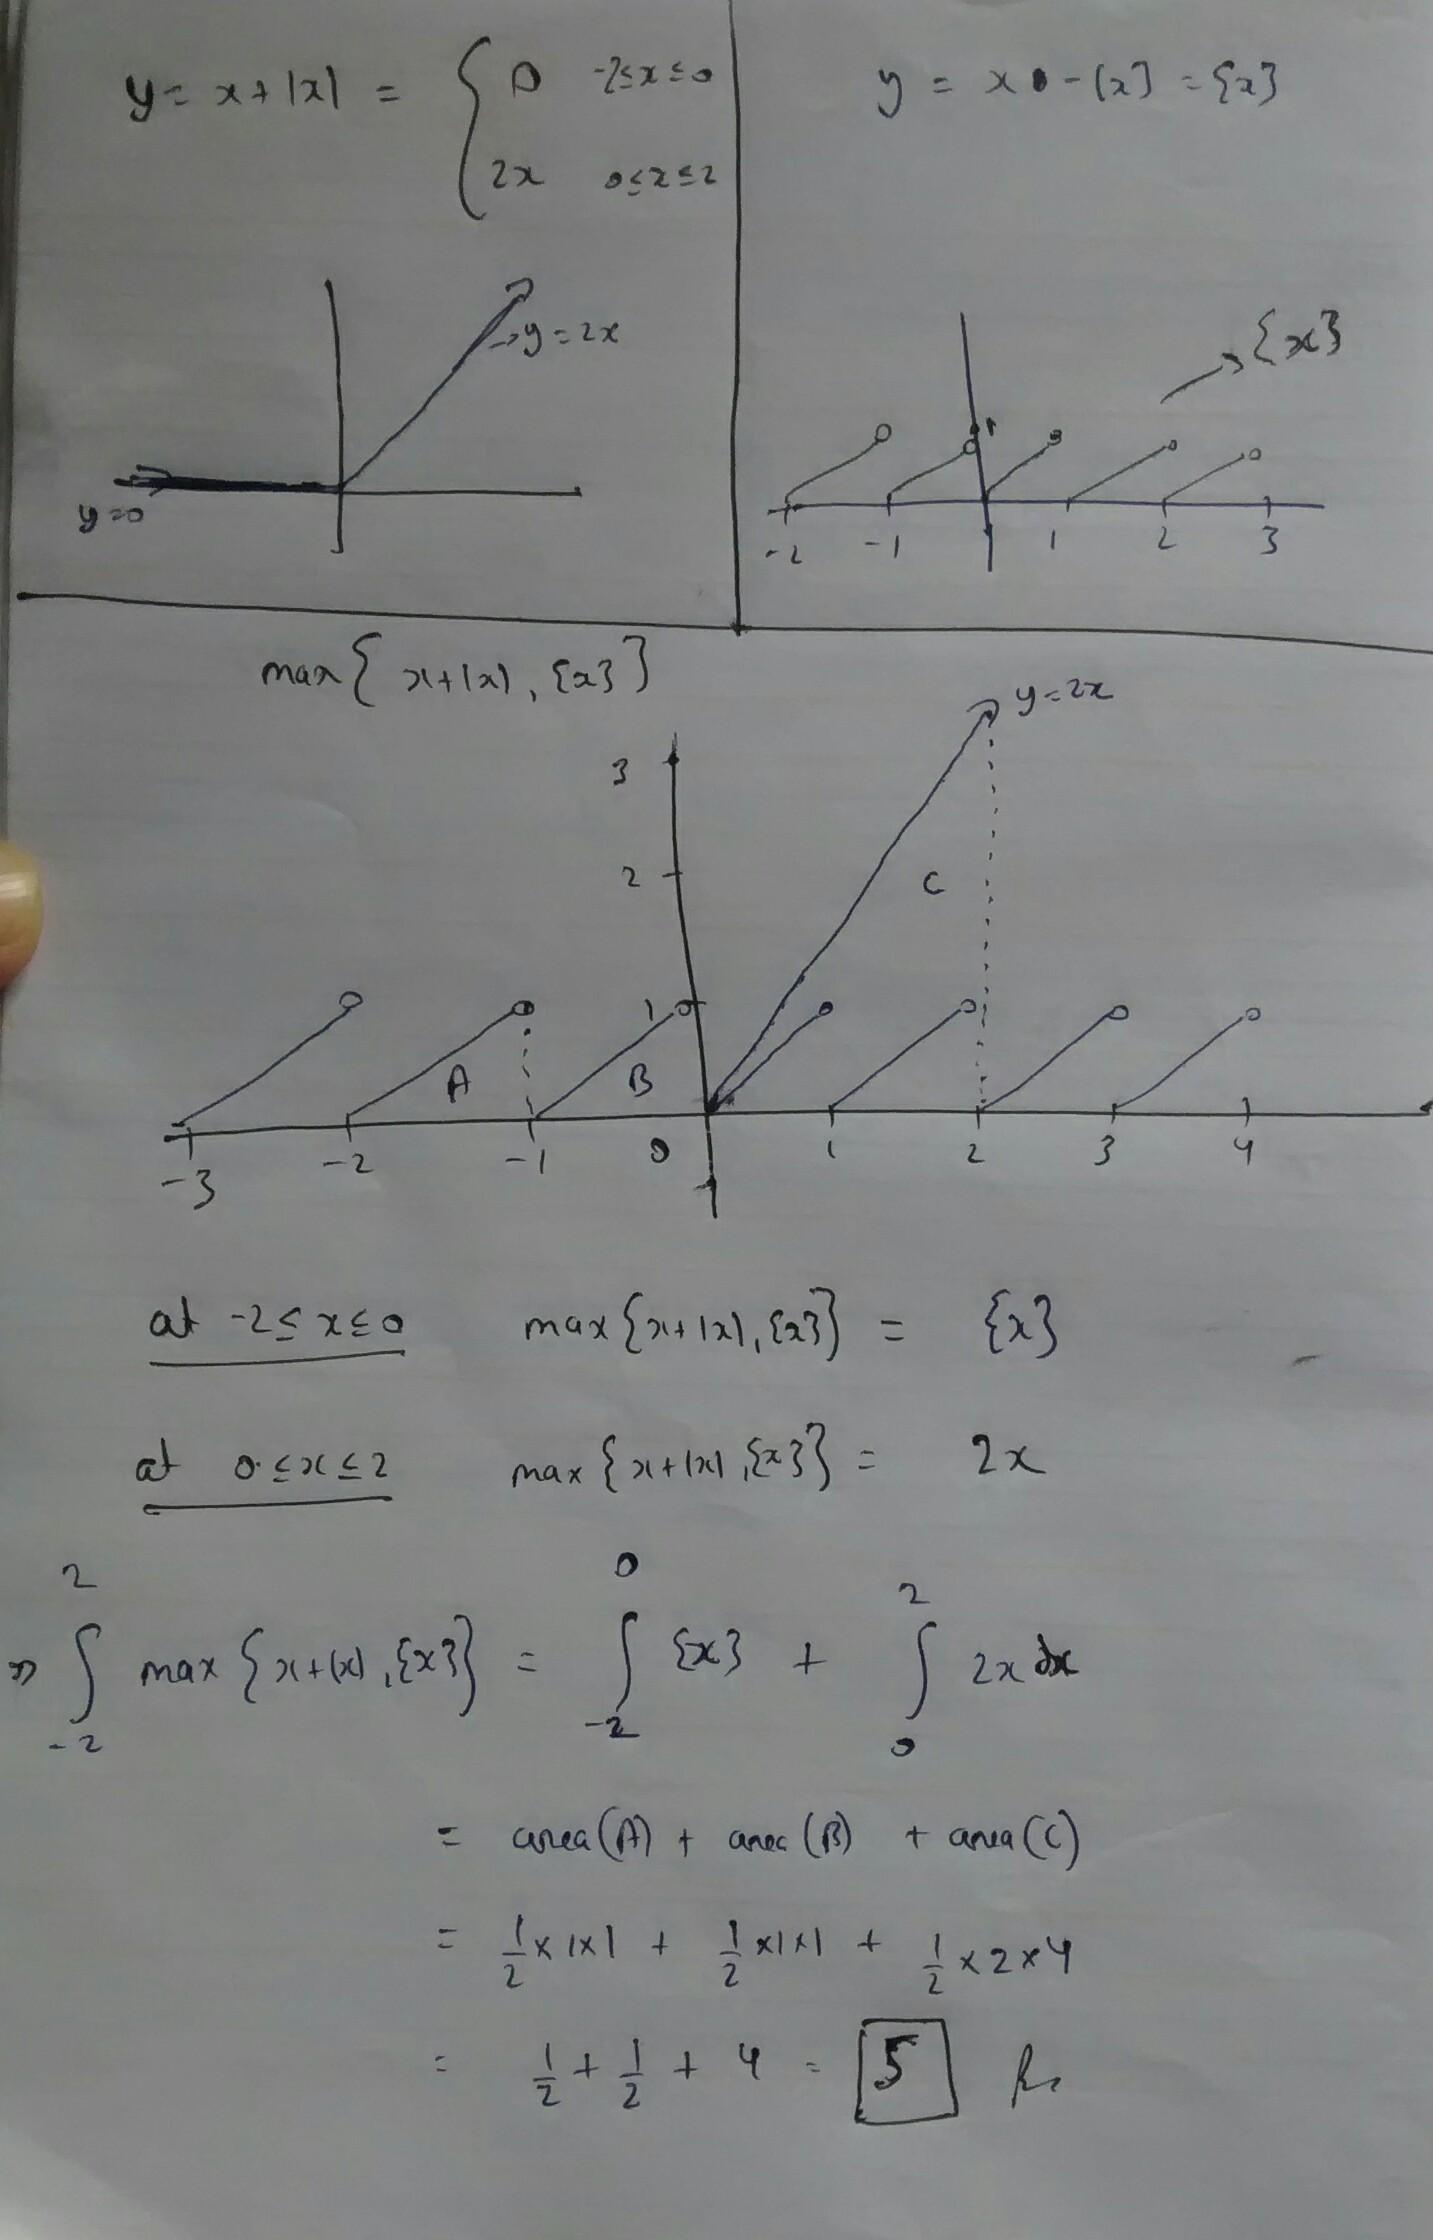 y = x + |x| = { 0 -2≤x≤0
2x 0≤x≤2
y = x - [x] = {x}
→ y = 2x
y=0
→ {x}
1
-2 -1 1 2 3
max{ x+|x|, {x} }
y=2x
3
2
C
1
A B
-3 -2 -1 0 1 2 3 4
at -2≤x≤0 max{x+|x|, {x}} = {x}
at 0≤x≤2 max{x+|x|, {x}} = 2x
⇒ ∫_{-2}^{2} max{x+|x|, {x}} = ∫_{-2}^{0} {x} + ∫_{0}^{2} 2x dx
= area(A) + area(B) + area(C)
= 1/2 × 1×1 + 1/2 ×1×1 + 1/2 × 2×4
= 1/2 + 1/2 + 4 = 5